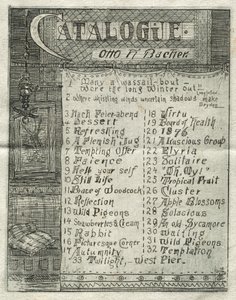 CATALOGUE.
Otto H. Bacher.
1 Many a wassail-bout
Wore the long Winter out
2 Where shifting winds uncertain shadows make
Dryden
3 Nach Feierabend
4 Dessert
5 Refreshing
6 A Plenish Jug
7 Tempting Offer
8 Faience
9 Help your self
10 Still Life
11 Brace of Woodcock
12 Reflection
13 Wild Pigeons
14 Strawberries & Cream
15 Rabbit
16 Picturesque Corner
17 Autumnity
18 Virtu
19 Board of Health
20 1876
21 Alluscious Group
22 Elyria
23 Solitaire
24 "Oh, My!"
25 Tropical Fruit
26 Cluster
27 Apple Blossoms
28 Solacious
29 An old Sycamore
30 Waiting
31 Wild Pigeons
32 Temptation
33 Twilight, West Pier.